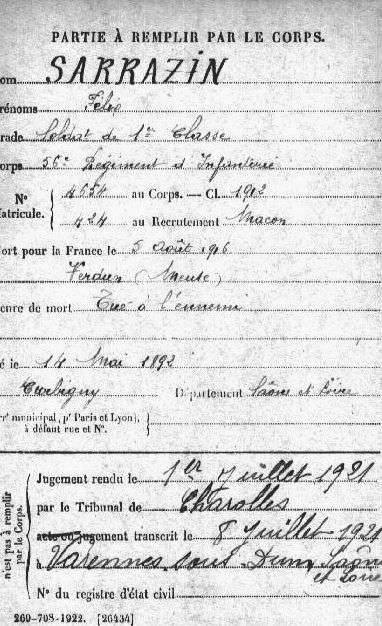 PARTIE À REMPLIR PAR LE CORPS.
om SARRAZIN
rénoms Félix
rade Soldat de 1re Classe
orps 56e Régiment d'Infanterie
N° 4654 au Corps. — Cl. 1912
atricule. 424 au Recrutement Macon
ort pour la France le 5 Août 1916
Verdun (Meuse)
enre de mort Tué à l'ennemi
é le 14 Mai 1892
Curbigny Département Saône et Loire
rrt municipal, pr Paris et Lyon),
à défaut rue et N°.
Jugement rendu le 1er Juillet 1921
par le Tribunal de Charolles
acte ou jugement transcrit le 8 Juillet 1921
à Varennes sous Dun, Saône
et Loire
N° du registre d'état civil
n'est pas à remplir
par le Corps.
269-708-1922. [26434]